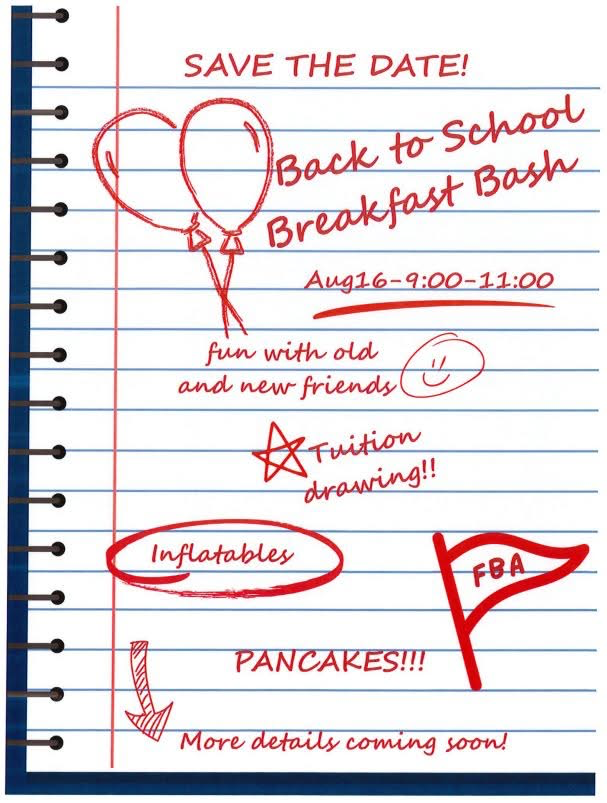 SAVE THE DATE!
Back to School
Breakfast Bash
Aug16-9:00-11:00
fun with old
and new friends
Tuition
drawing!!
Inflatables
FBA
PANCAKES!!!
More details coming soon!